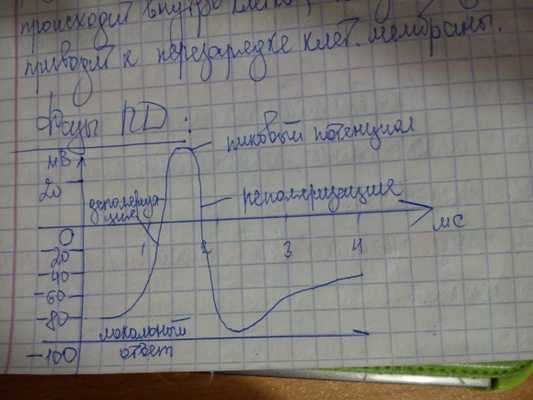 происходит внутрь
приводит к перезарядке клет. мембраны.
Фазы ПД:
мВ
пиковый потенциал
20
деполяриза
ция
реполяризация
0
мс
1 2 3 4
20
40
-60
-80
локальный
ответ
-100